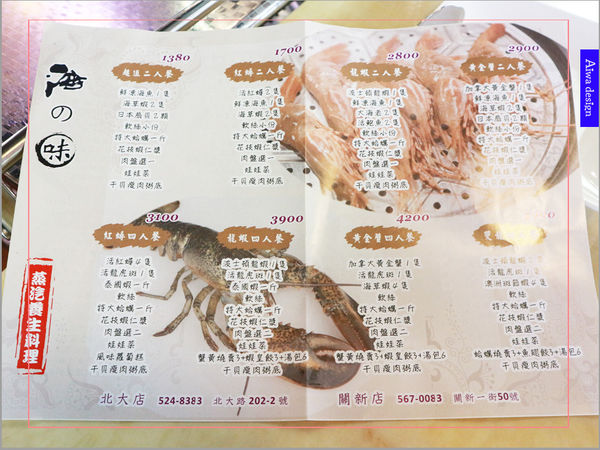 海の味
蒸汽養生料理
1380
超值二人餐
鮮凍海魚1隻
海草蝦2隻
日本扇貝2顆
軟絲小份
特大蛤蠣一斤
花枝蝦仁漿
肉盤選一
娃娃菜
干貝瘦肉粥底
1700
紅蟳二人餐
活紅蟳2隻
鮮凍海魚1隻
海草蝦2隻
軟絲小份
特大蛤蠣一斤
花枝蝦仁漿
肉盤選一
娃娃菜
干貝瘦肉粥底
2800
龍蝦二人餐
波士頓龍蝦1隻
鮮凍海魚1隻
大海老2隻
活鮑魚2隻
軟絲小份
特大蛤蠣一斤
花枝蝦仁漿
肉盤選一
娃娃菜
干貝瘦肉粥底
2900
黃金蟹二人餐
加拿大黃金蟹1隻
鮮凍海魚1隻
海草蝦2隻
日本扇貝2顆
軟絲小份
特大蛤蠣一斤
花枝蝦仁漿
肉盤選一
娃娃菜
干貝瘦肉粥底
3100
紅蟳四人餐
活紅蟳4隻
活龍虎斑1隻
泰國蝦一斤
軟絲
特大蛤蠣一斤
花枝蝦仁漿
肉盤選二
娃娃菜
風味蘿蔔糕
干貝瘦肉粥底
3900
龍蝦四人餐
波士頓龍蝦1隻
活龍虎斑1隻
泰國蝦一斤
軟絲
特大蛤蠣一斤
花枝蝦仁漿
肉盤選二
娃娃菜
蟹黃燒賣3+蝦皇餃3+湯包6
干貝瘦肉粥底
4200
黃金蟹四人餐
加拿大黃金蟹1隻
活龍虎斑1隻
海草蝦4隻
軟絲
特大蛤蠣一斤
花枝蝦仁漿
肉盤選二
娃娃菜
蟹黃燒賣3+蝦皇餃3+湯包6
干貝瘦肉粥底
0
雙
波士頓龍蝦1隻
活龍虎斑1隻
澳洲斑節蝦4隻
軟絲
特大蛤蠣一斤
花枝蝦仁漿
肉盤選二
娃娃菜
蛤蠣燒賣3+魚翅餃3+湯包6
干貝瘦肉粥底
北大店 524-8383 北大路202-2號
關新店 567-0083 關新一街50號
Aiwa design